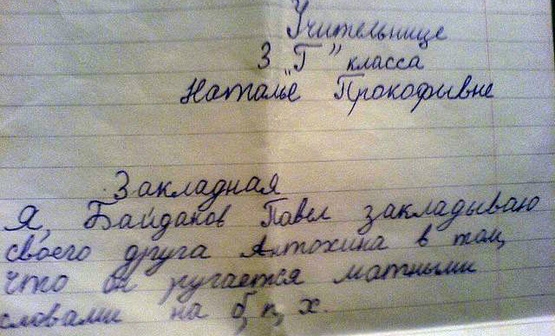 Учительнице
3 "Г" класса
Наталье Прокофывне
Закладная
Я, Байдаков Павел закладываю
своего друга Антохина в том,
что он ругается матными
словами на б, п, х.